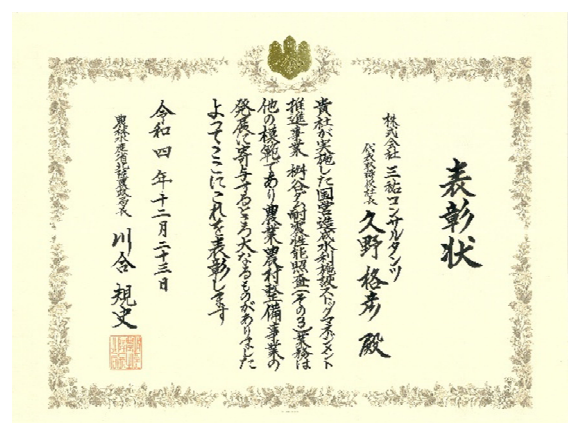 表彰状
株式会社 三祐コンサルタンツ
代表取締役社長 久野 格彦 殿
貴社が実施した国営造成水利施設ストックマネジメント
推進事業 桝谷ダム耐震性能照査(その3)業務は
他の模範であり農業農村整備事業の
発展に寄与するところ大なるものがありました
よってここにこれを表彰します
令和四年十二月二十三日
農林水産省北陸農政局長 川合 規史